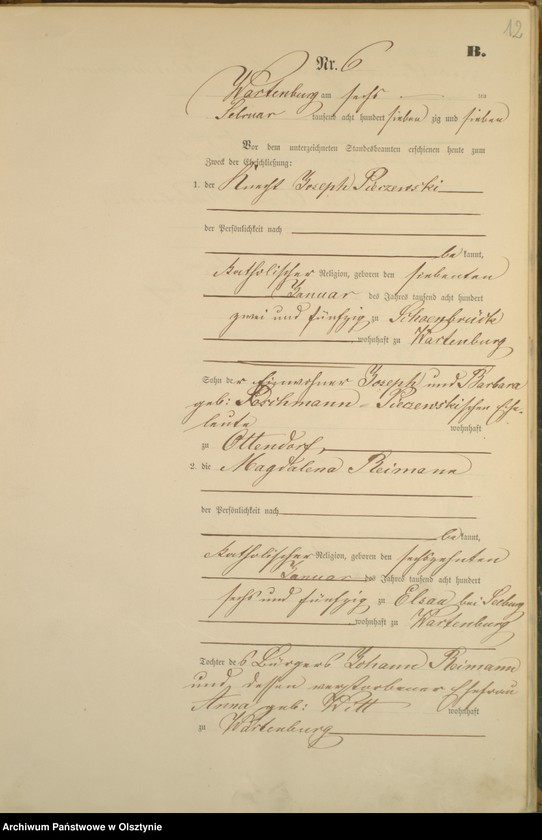 12
B.
Nr. 6
Wartenburg am sechs ten
Februar tausend acht hundert sieben zig und sieben
Vor dem unterzeichneten Standesbeamten erschienen heute zum
Zweck der Eheschließung:
1. der Knecht Joseph Pieczewski
der Persönlichkeit nach
be kannt,
katholischer Religion, geboren den siebenten
Januar des Jahres tausend acht hundert
zwei und fünfzig zu Schoenbrück
, wohnhaft zu Wartenburg
Sohn der Einwohner Joseph und Barbara
geb: Pieczewskischen Ehe-
leute wohnhaft
zu Ottendorf,
2. die Magdalena Reimann
der Persönlichkeit nach
be kannt,
katholischer Religion, geboren den sechszehnten
Januar des Jahres tausend acht hundert
sechs und fünfzig zu Elsau bei Seeburg
, wohnhaft zu Wartenburg
Tochter des Bürgers Johann Reimann
und dessen verstorbener Ehefrau
Anna geb: Witt wohnhaft
zu Wartenburg
Archiwum Państwowe w Olsztynie